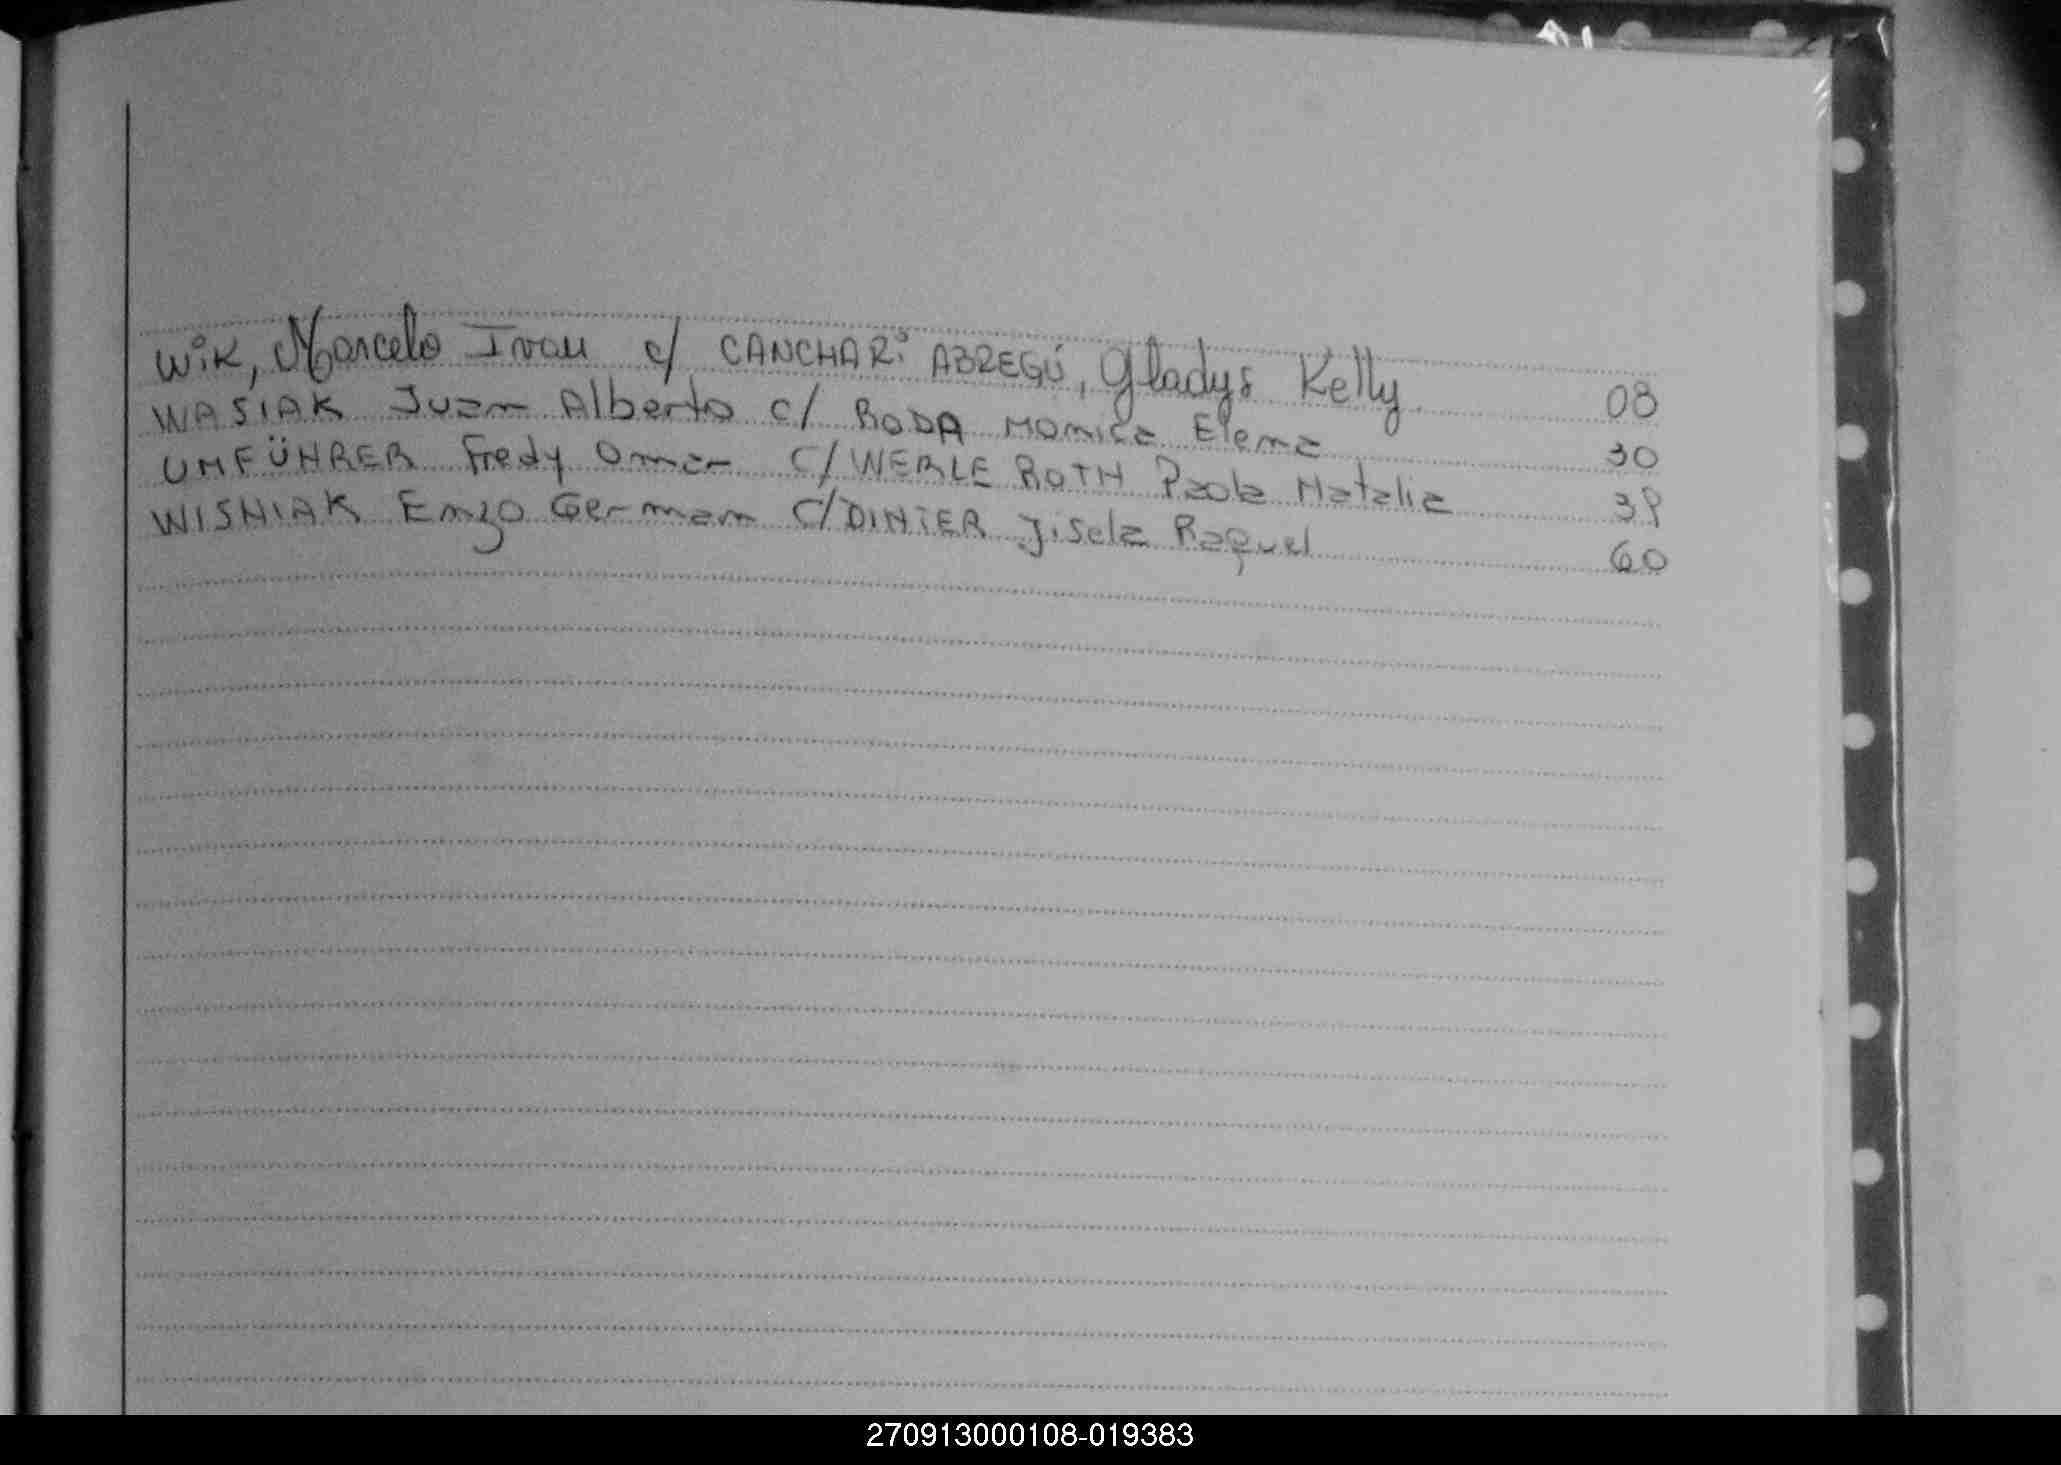 WiK, Marcelo Ivan c/ CANCHARi ABREGÚ, Gladys Kelly 08
WASIAK Juan Alberto c/ RODA Monica Elena 30
UMFÜHRER Fredy Omar c/ WERLE ROTH Paola Natalia 39
WISNIAK Enzo German c/ DINTER Jisela Raquel 60
270913000108-019383